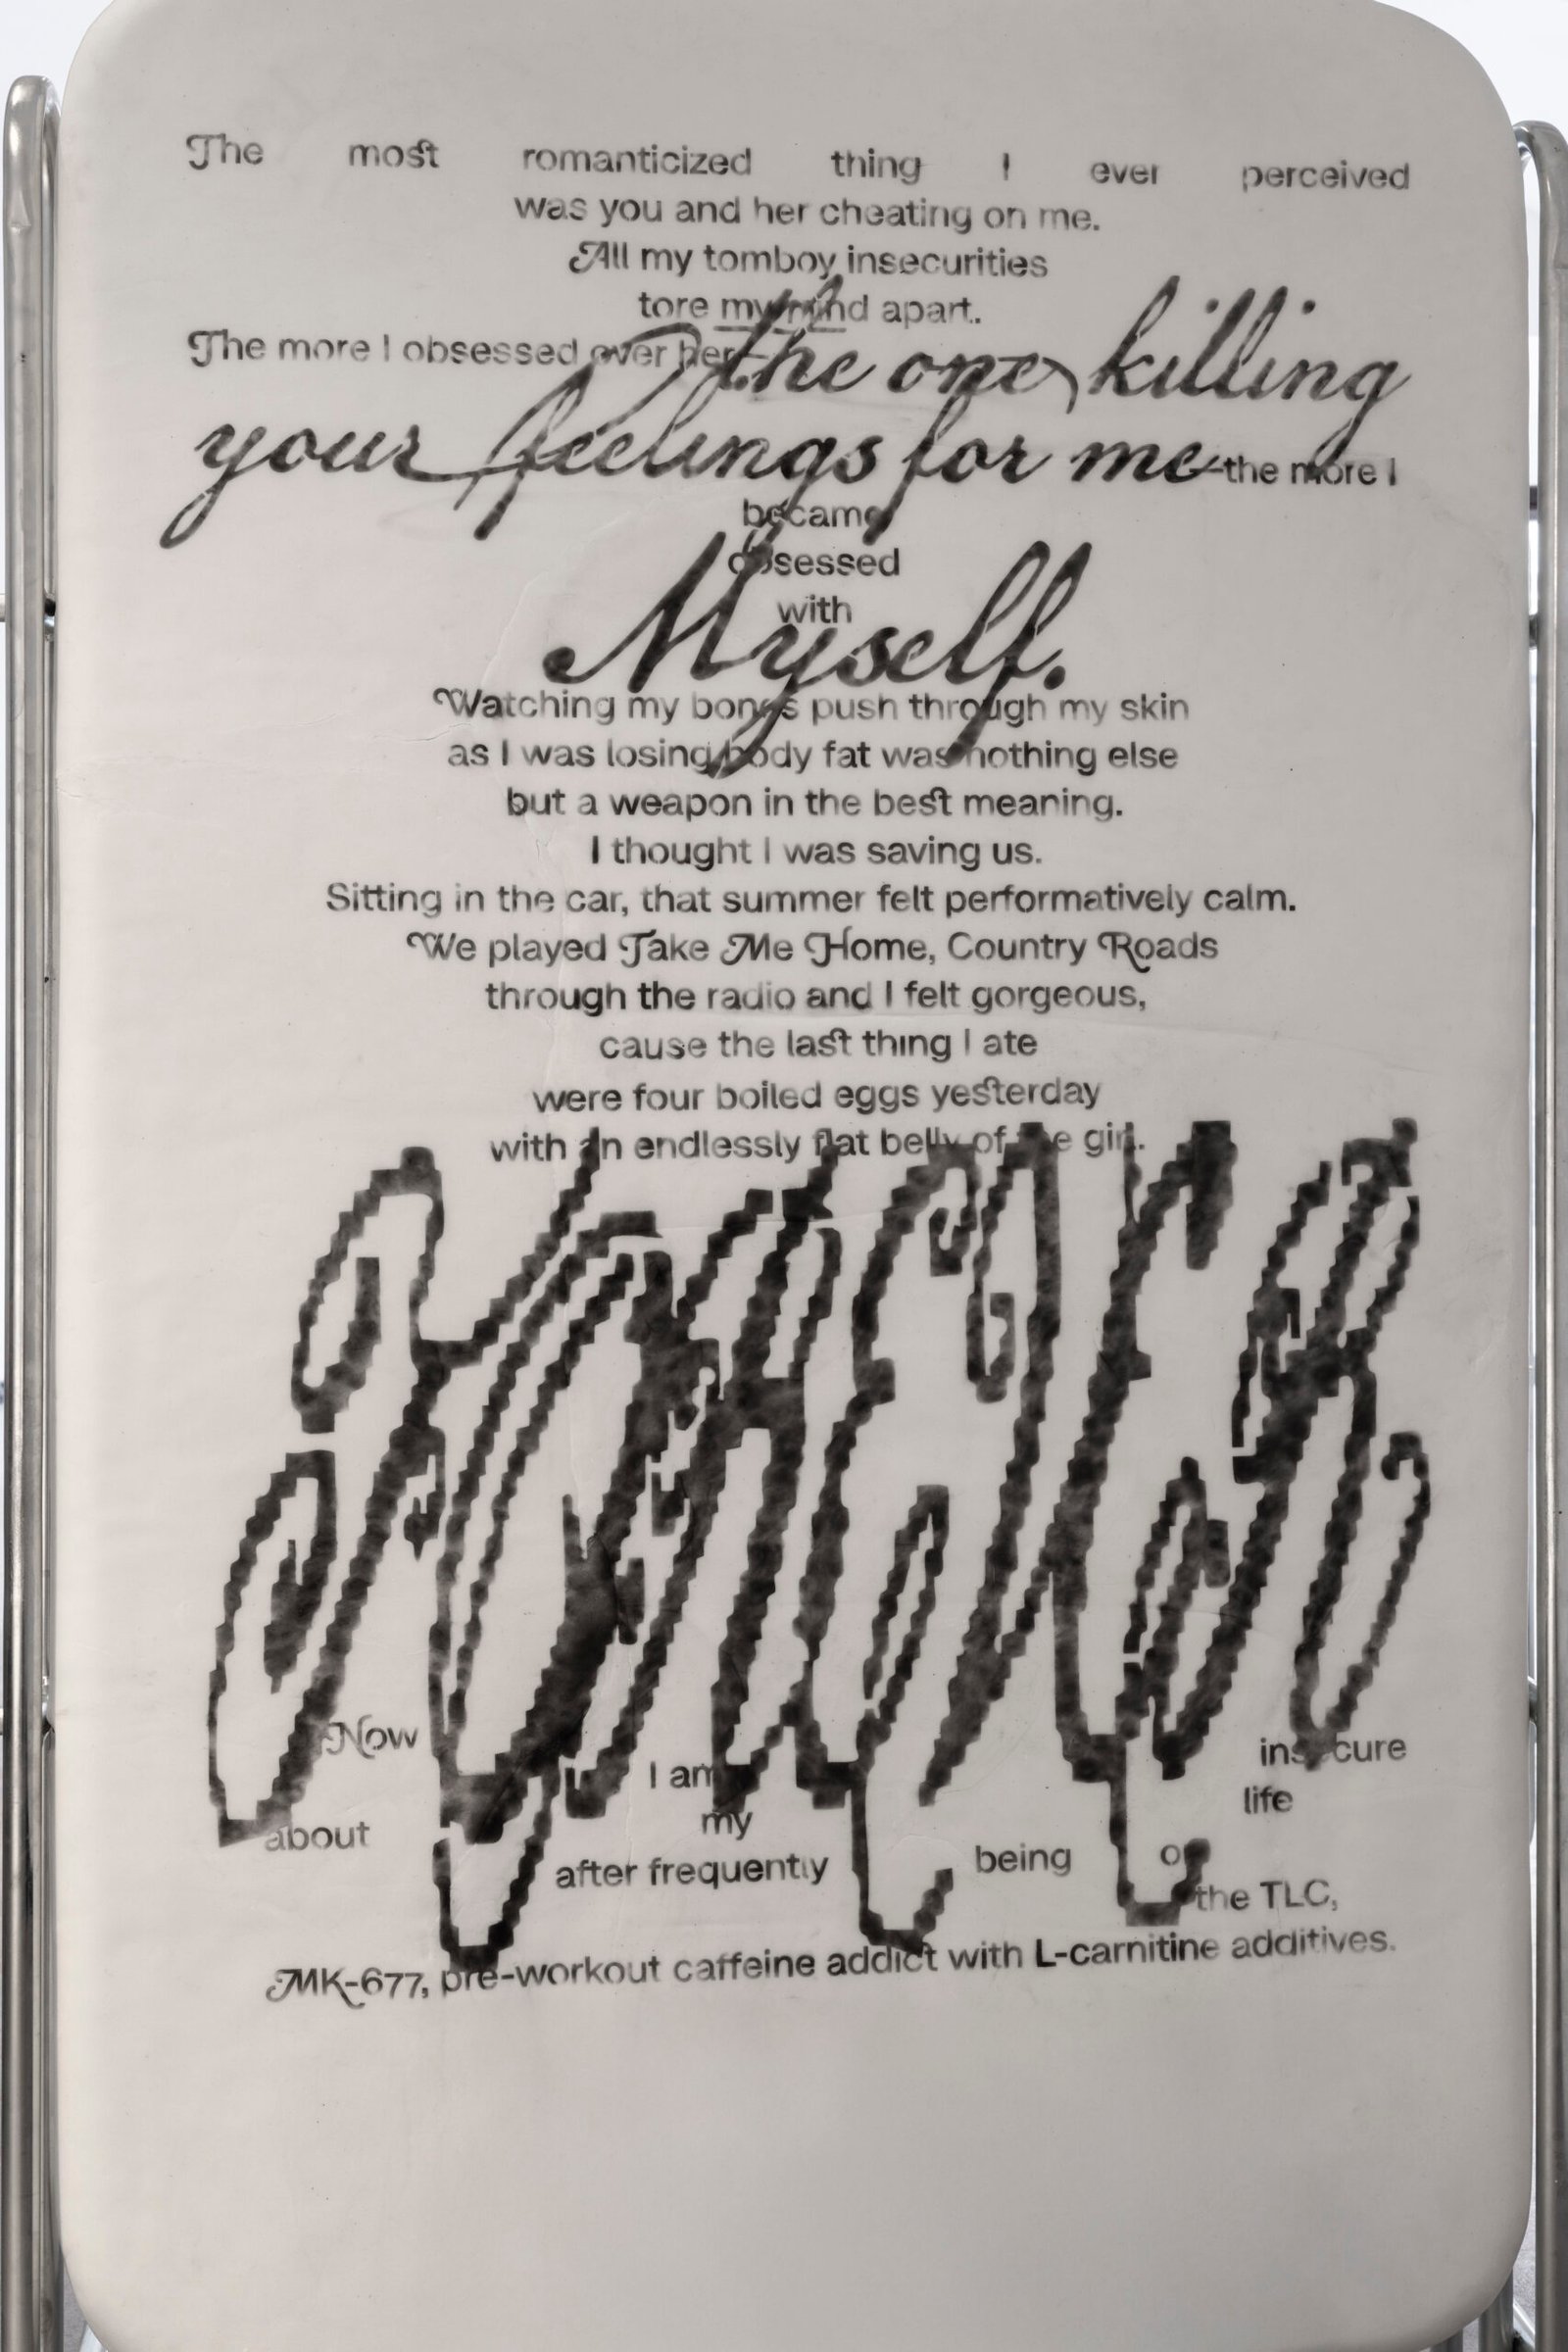 The most romanticized thing I ever perceived
was you and her cheating on me.
All my tomboy insecurities
tore my mind apart.
The more I obsessed over her—the one killing
your feelings for me—the more I
became
obsessed
with
Myself.
Watching my bones push through my skin
as I was losing body fat was nothing else
but a weapon in the best meaning.
I thought I was saving us.
Sitting in the car, that summer felt performatively calm.
We played Take Me Home, Country Roads
through the radio and I felt gorgeous,
cause the last thing I ate
were four boiled eggs yesterday
with an endlessly flat belly of the girl.
Now
I am
insecure
about
my
life
after frequently
being
the TLC,
MK-677, pre-workout caffeine addict with L-carnitine additives.